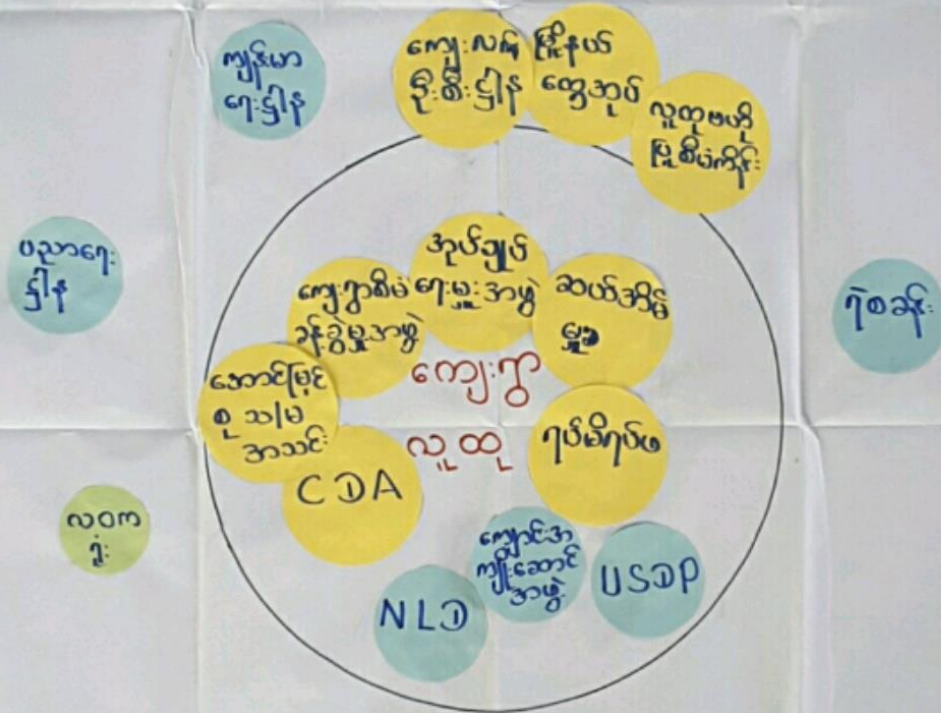 ကျန်းမာ
ရေးဌါန
ကျေးလက်
ဦးစီးဌါန
မြို့နယ်
ထွေအုပ်
လူထုဗဟို
ပြုစီမံကိန်း
ပညာရေး
ဌါန
အုပ်ချုပ်
ရေးမှူးအဖွဲ့
ကျေးရွာစီမံ
ခန့်ခွဲမှုအဖွဲ့
ဆယ်အိမ်
မှူး
ရဲစခန်း
ကျေးရွာ
လူထု
အောင်မြင်
စု သ/မ
အသင်း
ရပ်မိရပ်ဖ
CDA
လဝက
ရုံး
ကျောင်းအ
ကျိုးဆောင်
အဖွဲ့
NLD
USDP